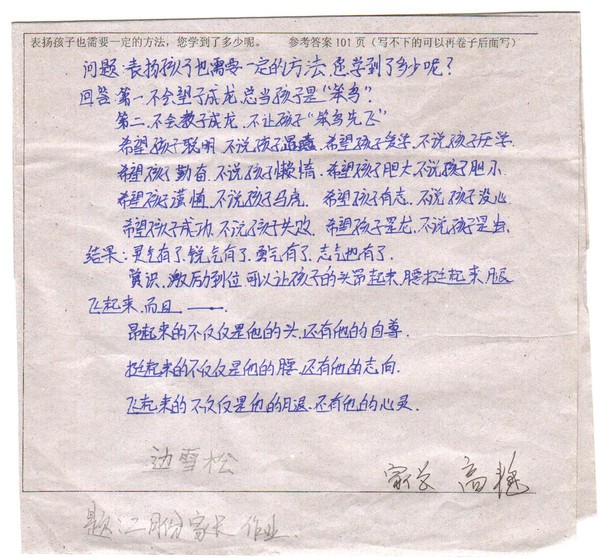 表扬孩子也需要一定的方法，您学到了多少呢。 参考答案101页（写不下的可以再卷子后面写）
问题：表扬孩子也需要一定的方法，您学到了多少呢？
回答：第一、不会望子成龙，总当孩子是“笨鸟”。
第二、不会教子成龙，不让孩子“笨鸟先飞”
希望孩子聪明，不说孩子愚蠢，希望孩子爱学，不说孩子厌学，
希望孩子勤奋，不说孩子懒惰，希望孩子胆大，不说孩子胆小，
希望孩子谨慎，不说孩子马虎，希望孩子有志，不说孩子没心，
希望孩子成功，不说孩子失败，希望孩子是龙，不说孩子是虫。
结果：灵气有了，锐气有了，勇气有了，志气也有了。
赏识、激励到位可以让孩子的头昂起来，腰挺起来，腿
飞起来，而且——。
昂起来的不仅仅是他的头，还有他的自尊，
挺起来的不仅仅是他的腰，还有他的志向，
飞起来的不仅仅是他的腿，还有他的心灵。
边雪松
家长 高
题：二月份家长作业.